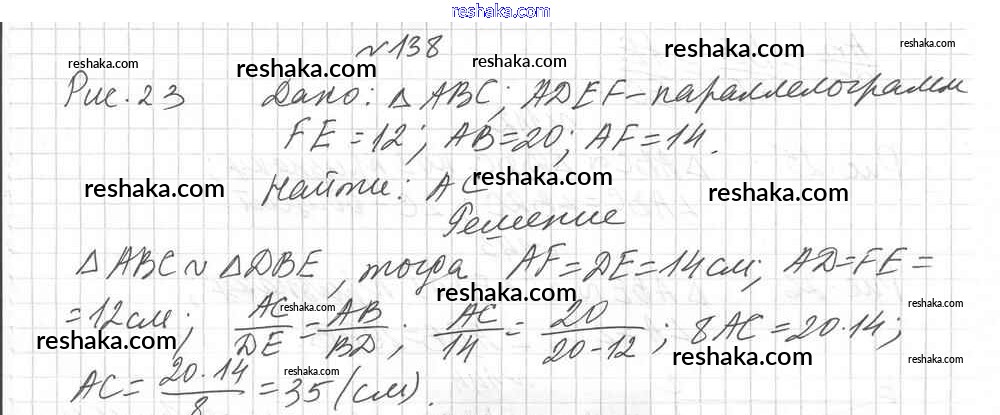 reshaka.com
№138
reshaka.com
reshaka.com
reshaka.com
reshaka.com
reshaka.com
Рис. 23 Дано: △ABC; ADEF - параллелограмм
FE = 12; AB = 20; AF = 14.
reshaka.com
reshaka.com
reshaka.com
reshaka.com
Найти: AC
Решение
△ABC ~ △DBE, тогда AF = DE = 14 см; AD = FE =
reshaka.com
reshaka.com
reshaka.com
= 12 см; AC/DE = AB/BD; AC/14 = 20/(20-12); 8AC = 20·14;
reshaka.com
reshaka.com
reshaka.com
reshaka.com
AC = 20·14/8 = 35 (см).